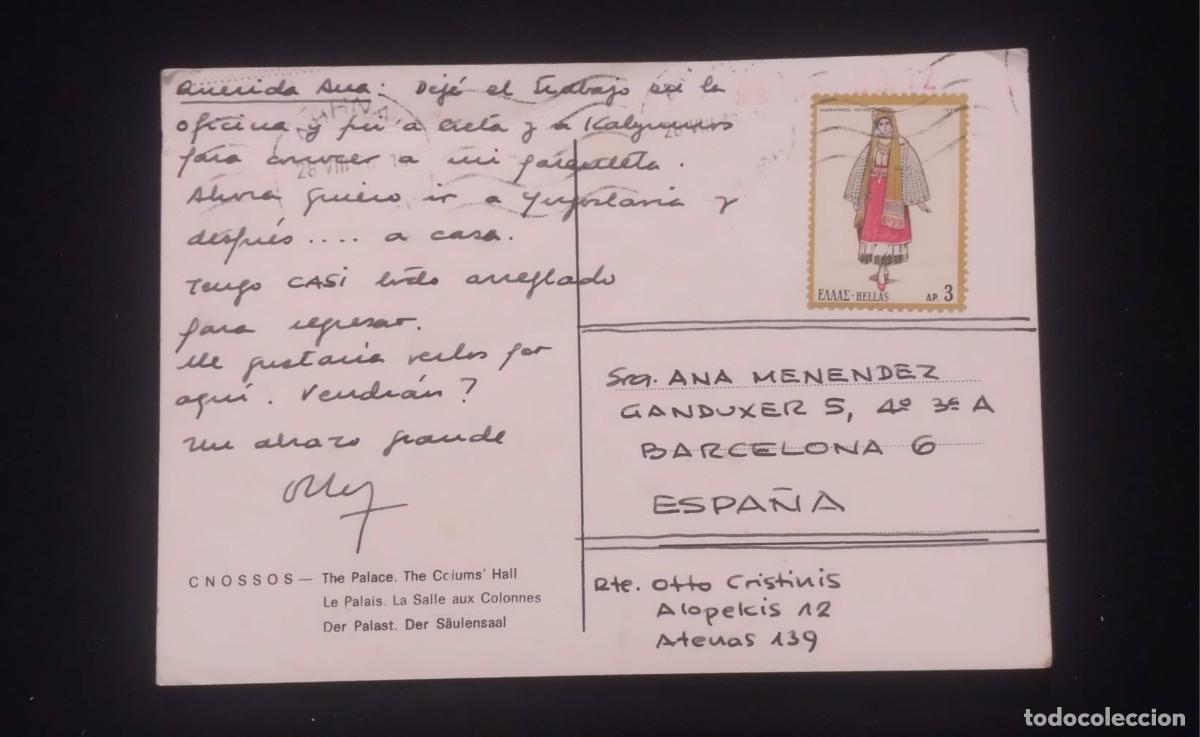 Querida Ana: Dejé el trabajo en la
oficina y fui a Creta y a Kalymnos
para conocer a mi parentela.
Ahora quiero ir a Yugoslavia y
después.... a casa.
Tengo CASI todo arreglado
para regresar.
Me gustaria verlos por
aquí. Vendrán?
Un abrazo grande
CNOSSOS — The Palace. The Colums' Hall
Le Palais. La Salle aux Colonnes
Der Palast. Der Säulensaal
28 VIII
ΕΛΛΑΣ-HELLAS ΔΡ. 3
Sra. ANA MENENDEZ
GANDUXER 5, 4º 3ª A
BARCELONA 6
ESPAÑA
Rte. Otto Cristinis
Alopekis 12
Atenas 139
todocoleccion